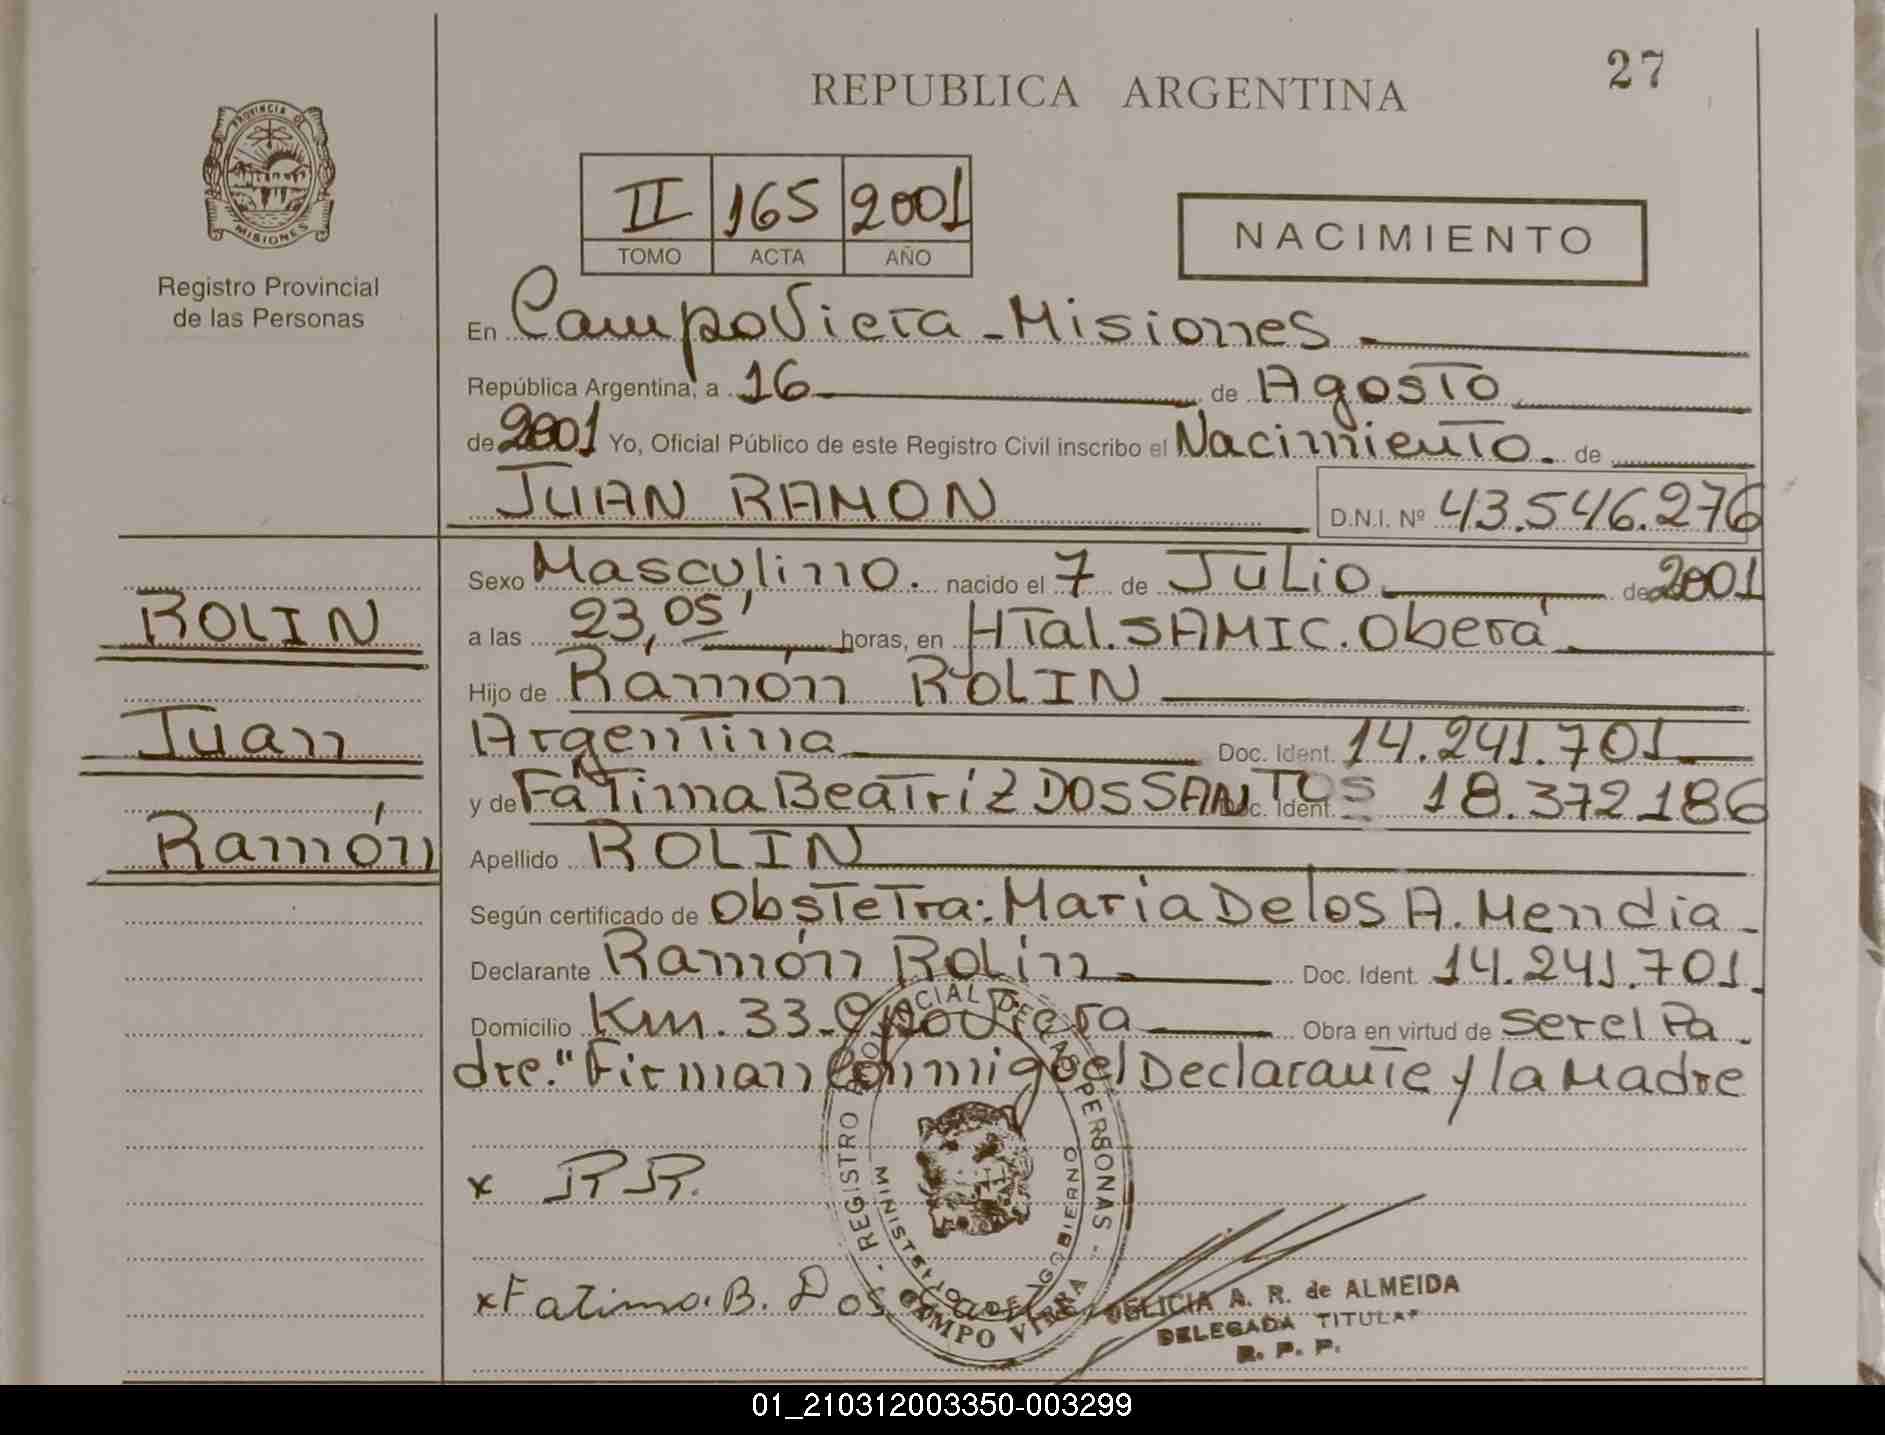 27
REPUBLICA ARGENTINA
PROVINCIA DE
MISIONES
Registro Provincial
de las Personas
II 165 2001
TOMO ACTA AÑO
NACIMIENTO
En Campo Viera - Misiones
República Argentina, a 16 de Agosto
de 2001 Yo, Oficial Público de este Registro Civil inscribo el Nacimiento. de
JUAN RAMON D.N.I. Nº 43.546.276
Sexo Masculino. nacido el 7 de Julio de 2001
a las 23,05' horas, en HTal. SAMIC. Oberá
Hijo de Ramón ROLIN
Argentina Doc. Ident. 14.241.701
y de Fátima Beatríz DOS SANTOS Doc. Ident. 18.372.186
Apellido ROLIN
Según certificado de Obstetra: Maria De los A. Mendia
Declarante Ramón Rolin Doc. Ident. 14.241.701.
Domicilio Km. 33. Cpo Viera Obra en virtud de ser el Pa
dre." Firman Conmigo el Declarante y la Madre
ROLIN
Juan
Ramón
x R R.
xFatima. B. Dos
REGISTRO PROVINCIAL DE LAS PERSONAS
MINISTERIO DE GOBIERNO
CAMPO VIERA
DELICIA A. R. de ALMEIDA
DELEGADA TITULAR
R. P. P.
01_210312003350-003299